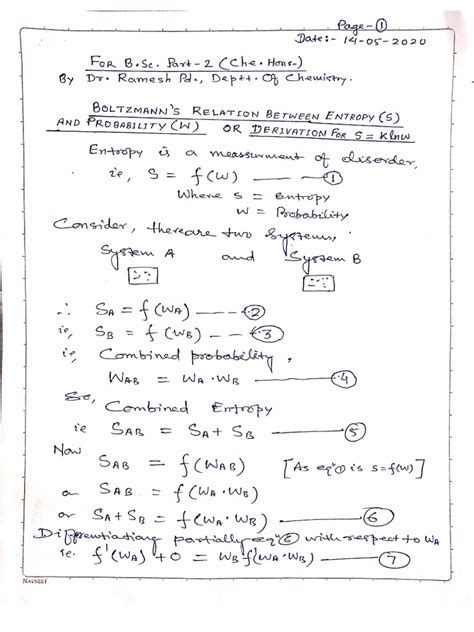 Page-①
Date:- 14-05-2020
FOR B.Sc. Part-2 (Che. Hons.)
By Dr. Ramesh Pd., Deptt. Of Chemistry.
BOLTZMANN'S RELATION BETWEEN ENTROPY (S)
AND PROBABILITY (W) OR DERIVATION FOR S = Klnw
Entropy is a meassurment of disorder,
ie, S = f(W) —— ①
Where S = Entropy
W = Probability
Consider, thereare two Systems,
System A and System B
∴ SA = f(WA) —— ②
ie, SB = f(WB) —— ③
ie, Combined probability,
WAB = WA·WB —— ④
So, Combined Entropy
ie SAB = SA + SB —— ⑤
Now SAB = f(WAB) [As eqn① is S=f(W)]
or SAB = f(WA·WB)
or SA+SB = f(WA·WB) —— ⑥
Differentiating partially eqn⑥ with respect to WA
ie. f'(WA) + 0 = WB f'(WA·WB) —— ⑦
NAVNEET